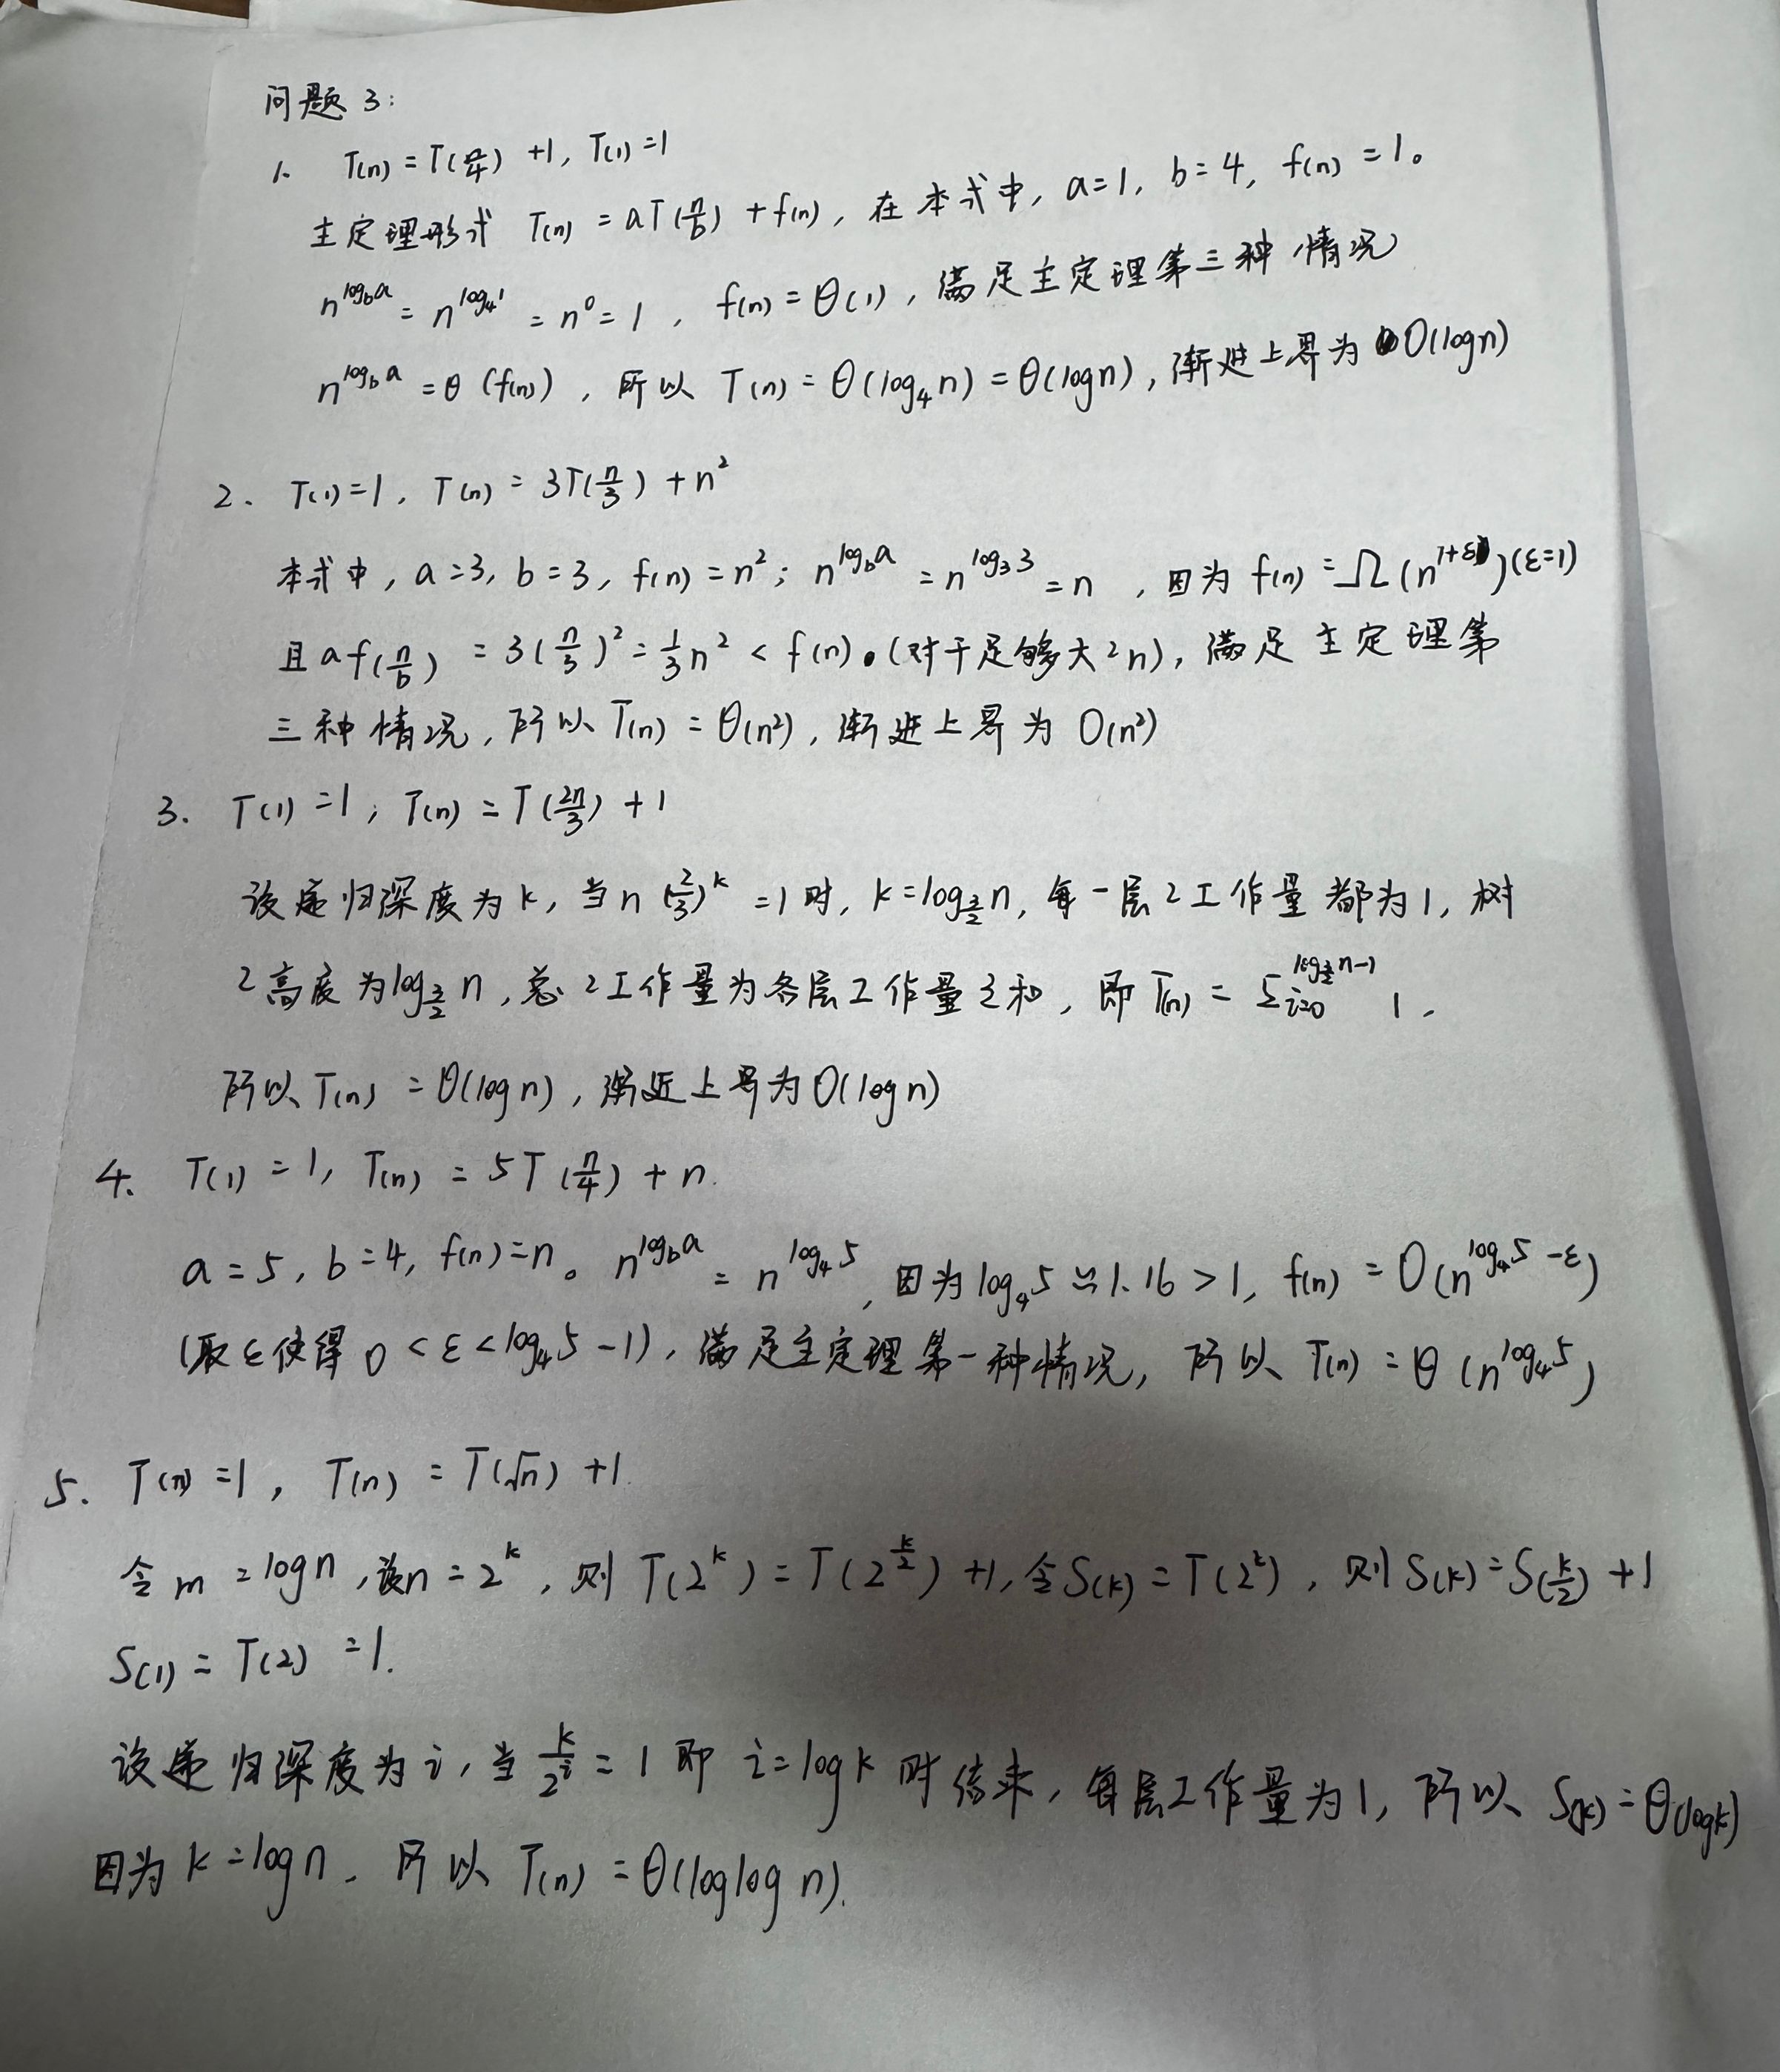 问题 3:
1. T(n) = T(n/4) +1, T(1) =1
主定理形式 T(n) = aT(n/b) + f(n), 在本式中, a=1, b=4, f(n) =1。
n^{log_b a} = n^{log_4 1} = n^0 = 1, f(n) = θ(1), 满足主定理第三种情况
n^{log_b a} = θ(f(n)), 所以 T(n) = θ(log_4 n) = θ(log n), 渐进上界为 O(log n)
2. T(1)=1, T(n) = 3T(n/3) + n^2
本式中, a=3, b=3, f(n) = n^2; n^{log_b a} = n^{log_3 3} = n, 因为 f(n) = Ω(n^{1+ε})(ε=1)
且 a f(n/b) = 3(n/3)^2 = 1/3 n^2 < f(n)。(对于足够大之n), 满足主定理第
三种情况, 所以 T(n) = θ(n^2), 渐进上界为 O(n^2)
3. T(1) =1, T(n) = T(2n/3) + 1
设递归深度为 k, 当 n(2/3)^k =1时, k = log_{3/2} n, 每一层之工作量都为1, 树
之高度为 log_{3/2} n, 总之工作量为各层工作量之和, 即 T(n) = Σ_{i=0}^{log_{3/2} n-1} 1.
所以 T(n) = θ(log n), 渐近上界为 O(log n)
4. T(1) = 1, T(n) = 5T(n/4) + n.
a = 5, b = 4, f(n) = n。n^{log_b a} = n^{log_4 5}, 因为 log_4 5 ≈ 1.16 > 1, f(n) = O(n^{log_4 5 -ε})
(取ε使得 0 < ε < log_4 5 -1), 满足主定理第一种情况, 所以 T(n) = θ(n^{log_4 5})
5. T(n) =1, T(n) = T(√n) +1.
令 m = log n, 设n = 2^k, 则 T(2^k) = T(2^{k/2}) +1, 令 S(k) = T(2^k), 则 S(k) = S(k/2) +1
S(1) = T(2) =1.
设递归深度为 i, 当 k/2^i = 1 即 i = log k 时结束, 每层工作量为1, 所以 S(k) = θ(log k)
因为 k = log n, 所以 T(n) = θ(log log n).